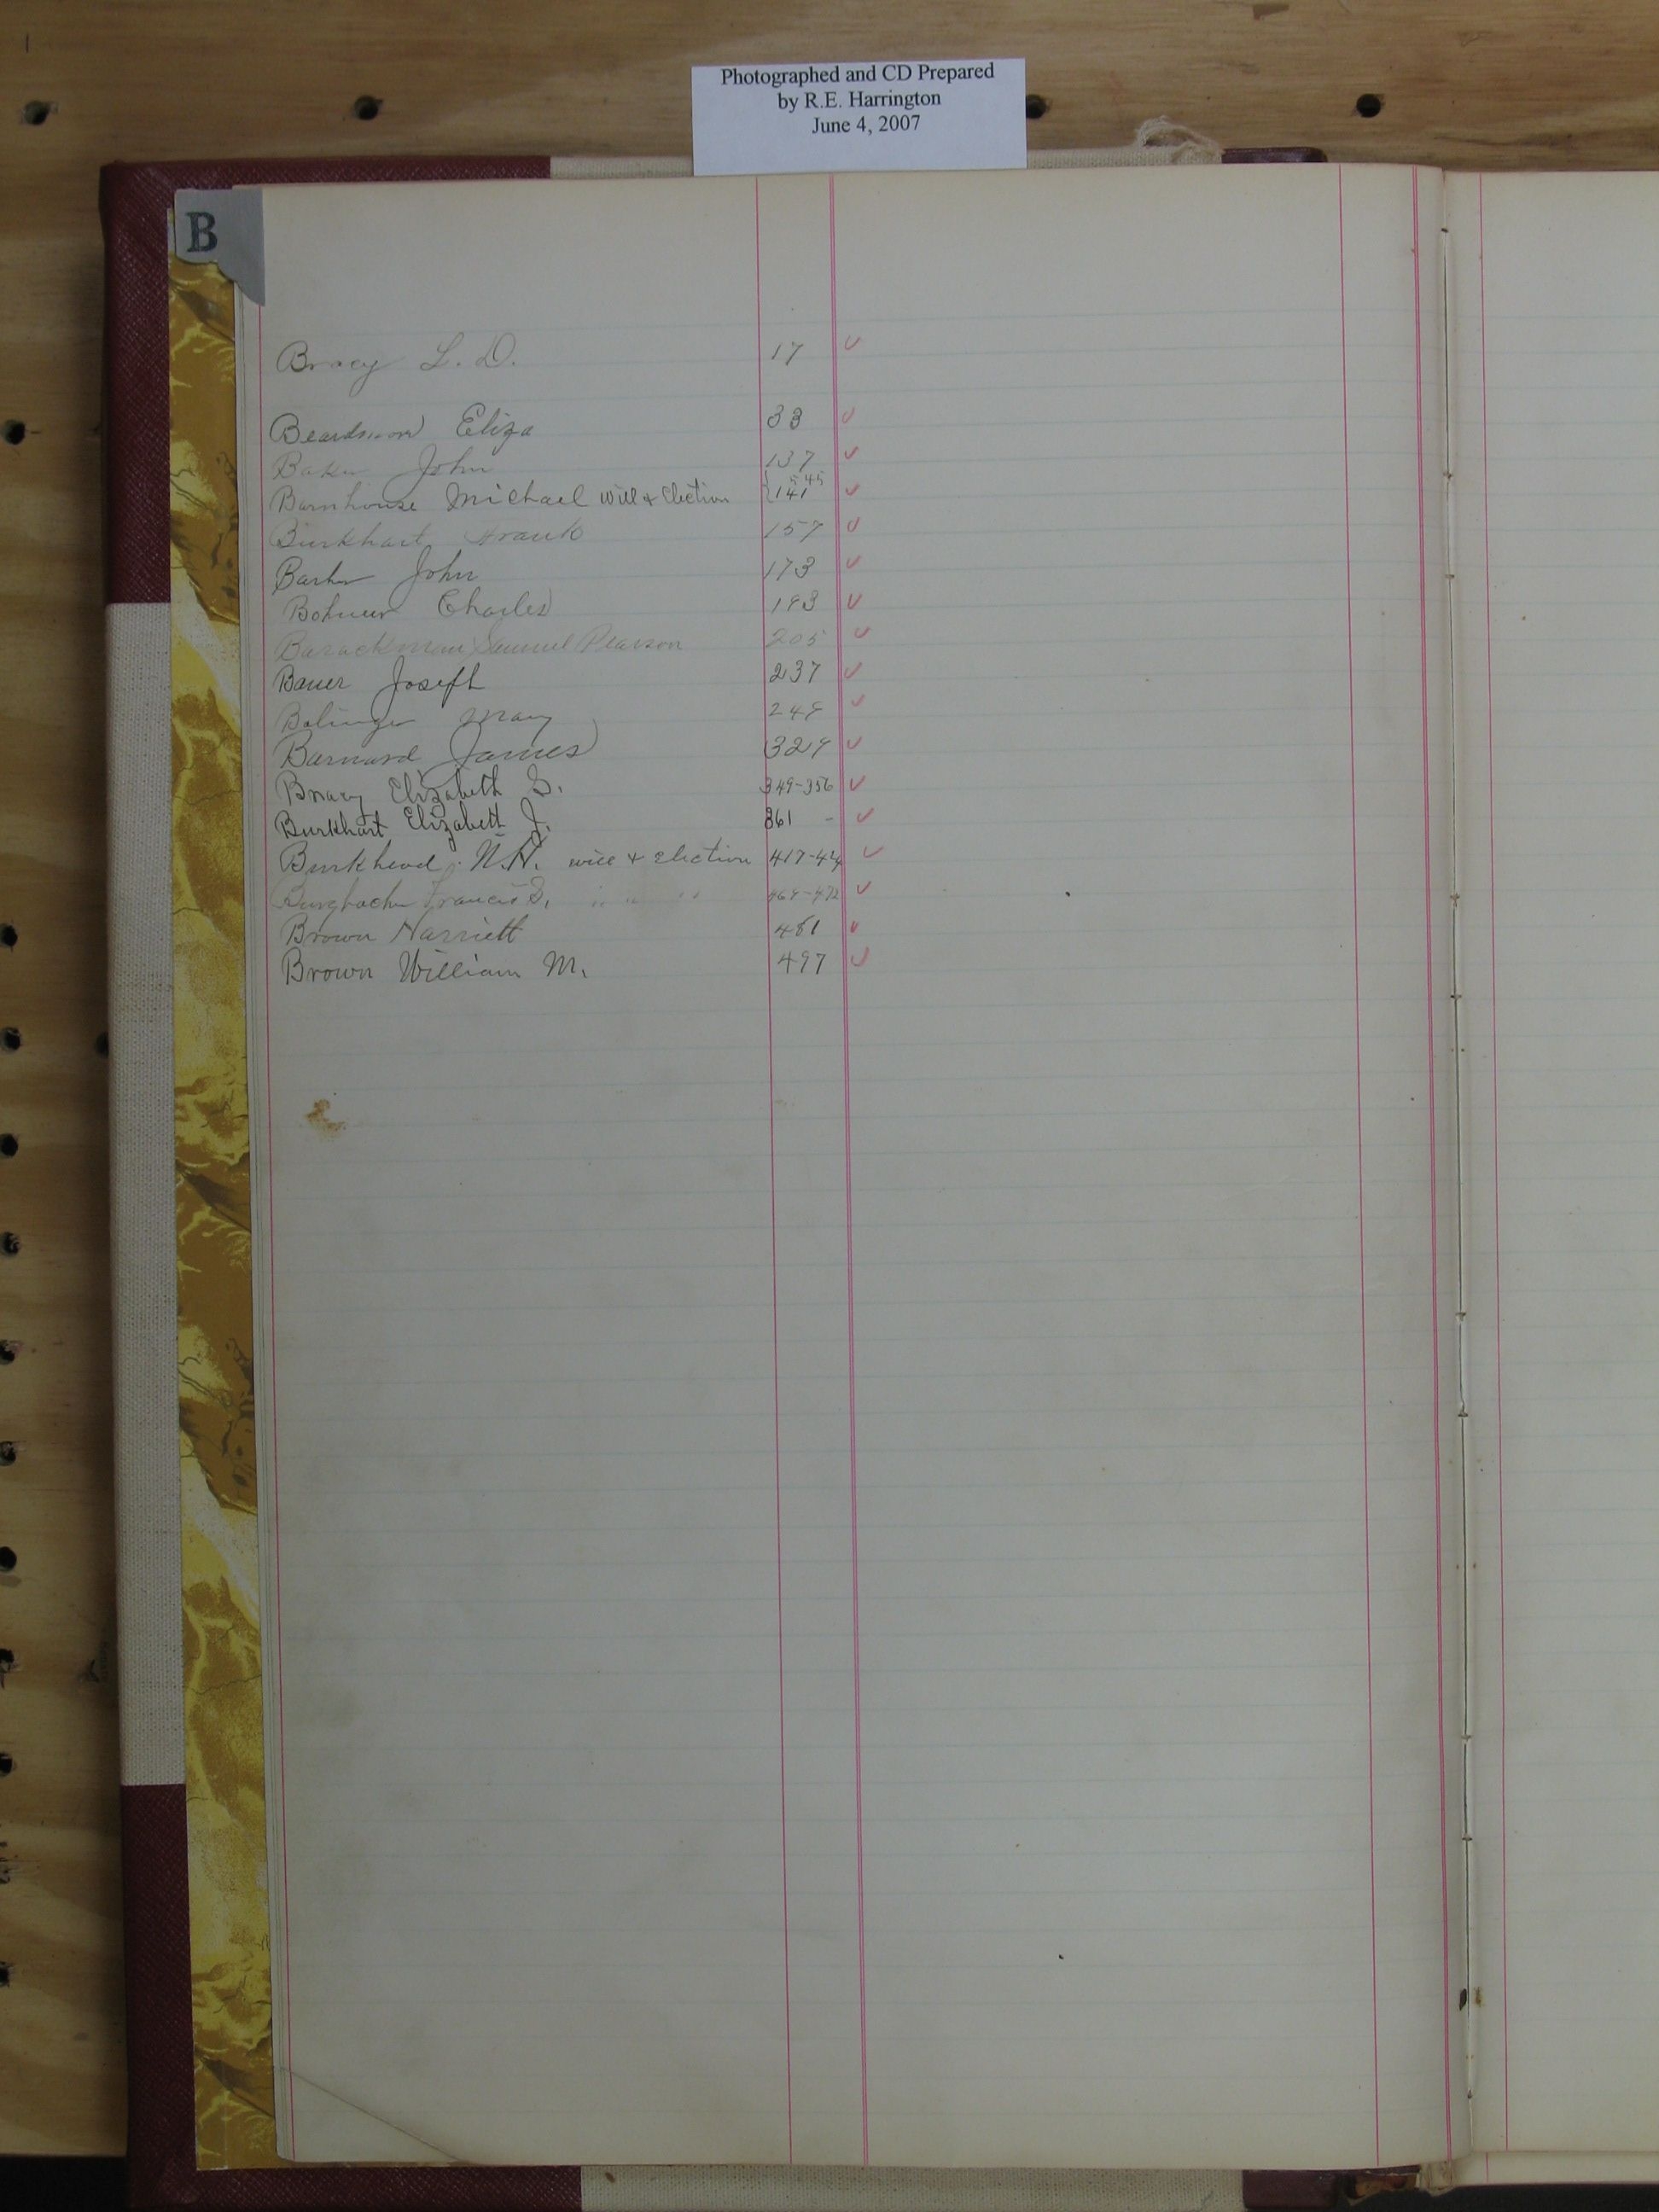 Photographed and CD Prepared
by R.E. Harrington
June 4, 2007
B
Bracy L. D. 17
Beardsmore Eliza 33
Baker John 137
Barnhouse Michael will & Election 141 545
Burkhart Frank 157
Barker John 173
Charles 193
Barackman Samuel Pearson 205
Bauer Joseph 237
Bolinger Mary 249
Barnard James 329
Bracy Elizabeth S. 349-356
Burkhart Elizabeth J. 361 -
Burkhead N.H. will & Election 417-424
Francis S. " " " 469-472
Brown Harriett 481
Brown William M. 497